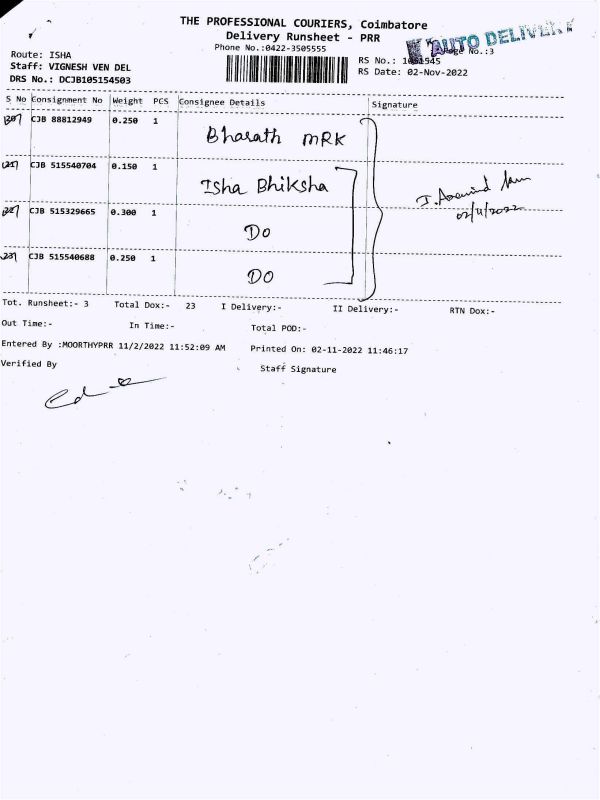 THE PROFESSIONAL COURIERS, Coimbatore
Delivery Runsheet - PRR
AUTO DELIVERY
Phone No.:0422-3505555
No.:3
Route: ISHA
RS No.: 1051545
Staff: VIGNESH VEN DEL
RS Date: 02-Nov-2022
DRS No.: DCJB105154503
S No Consignment No Weight PCS Consignee Details Signature
20 CJB 88812949 0.250 1 Bharath MRK
21 CJB 515540704 0.150 1 Isha Bhiksha
02/11/2022
22 CJB 515329665 0.300 1 DO
23 CJB 515540688 0.250 1 DO
Tot. Runsheet:- 3 Total Dox:- 23 I Delivery:- II Delivery:- RTN Dox:-
Out Time:- In Time:- Total POD:-
Entered By :MOORTHYPRR 11/2/2022 11:52:09 AM Printed On: 02-11-2022 11:46:17
Verified By Staff Signature